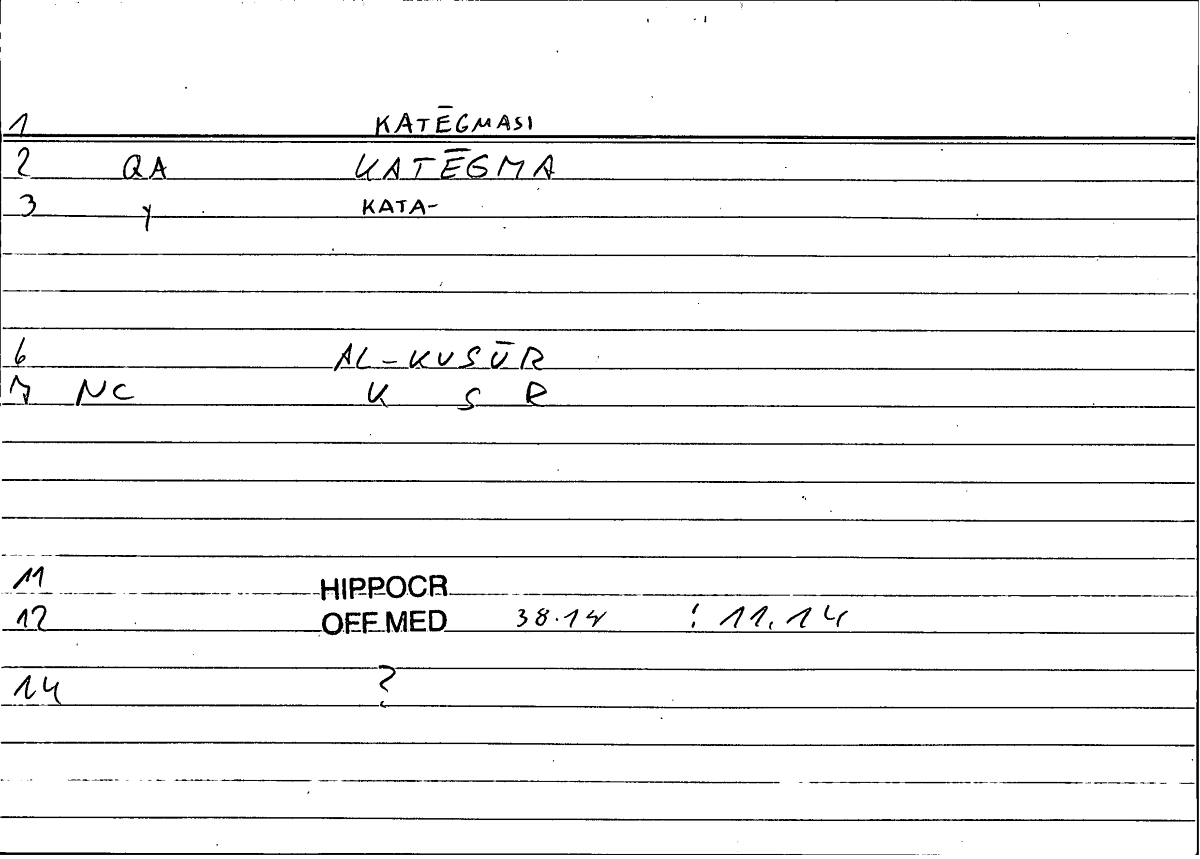 1 KATĒGMASI
2 QA KATĒGMA
3 γ KATA-
6 AL-KUSŪR
7 NC K S R
11 HIPPOCR
12 OFF.MED 38.14 : 11,14
14 ?